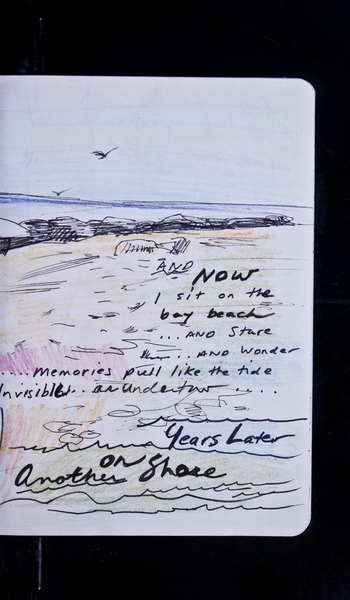 AND
NOW
I sit on the
bay beach
...AND Stare
... AND Wonder
....memories pull like the tide
Invisible.. an Undertow ....
Years Later
on
Another Shore